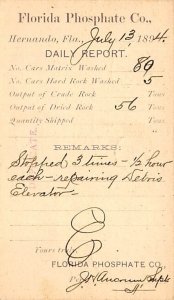 Florida Phosphate Co.,
Hernando, Fla., July 13, 1894.
DAILY REPORT.
No. Cars Matrix Washed 89
No. Cars Hard Rock Washed 5
Output of Crude Rock Tons
Output of Dried Rock 56 Tons
Quantity Shipped Tons
REMARKS:
Stopped 3 times - ½ hour
each - repairing Debris
Elevator -
Yours truly,
FLORIDA PHOSPHATE CO.,
Supt.